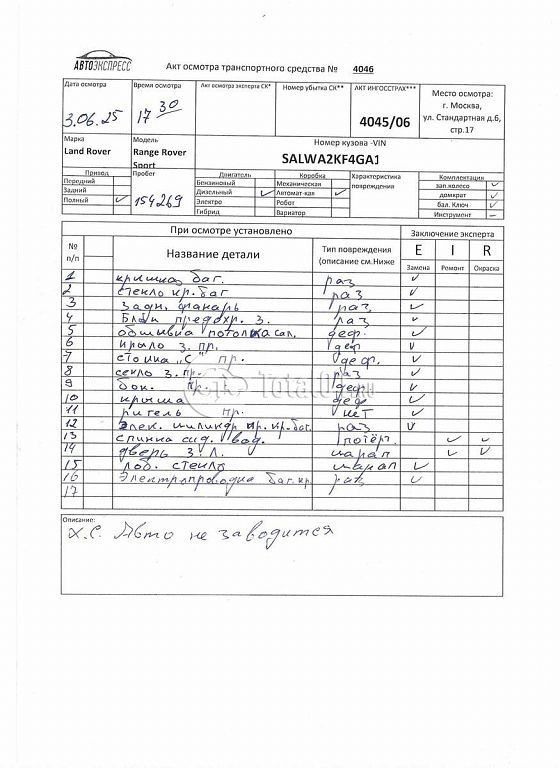 АВТОЭКСПРЕСС
Акт осмотра транспортного средства № 4046
Дата осмотра
3.06.25
Время осмотра
17 30
Акт осмотра эксперта СК*
Номер убытка СК**
АКТ ИНГОССТРАХ***
4045/06
Место осмотра:
г. Москва,
ул. Стандартная д.6,
стр.17
Марка
Land Rover
Модель
Range Rover
Sport
Номер кузова -VIN
SALWA2KF4GA1
Привод
Передний
Задний
Полный ✓
Пробег
154269
Двигатель
Бензиновый
Дизельный ✓
Электро
Гибрид
Коробка
Механическая
Автомат-кая ✓
Робот
Вариатор
Характеристика
повреждения
Комплектация
зап.колесо ✓
домкрат ✓
бал. Ключ ✓
Инструмент –
При осмотре установлено
Заключение эксперта
№ п/п
Название детали
Тип повреждения
(описание см.Ниже
E Замена
I Ремонт
R Окраска
1 крышка баг. раз ✓
2 стекло кр. баг раз ✓
3 задн. фонарь раз ✓
4 Блок предохр. з. раз ✓
5 обшивка потолка сал. деф. ✓
6 крыло з. пр. деф ✓
7 стойка "С" пр. деф. ✓
8 секло з. пр. раз ✓
9 бок. пр. деф ✓
10 крыша деф ✓
11 ригель пр. нет ✓
12 Элек. цилиндр пр. кр. баг. раз ✓
13 спинка сид. вод. потёр. ✓ ✓
14 дверь з. л. царап ✓ ✓
15 лоб. стекло царап ✓
16 Электропроводка баг. кр. раз ✓
17
Total01.RU
Описание:
х.с. Авто не заводится